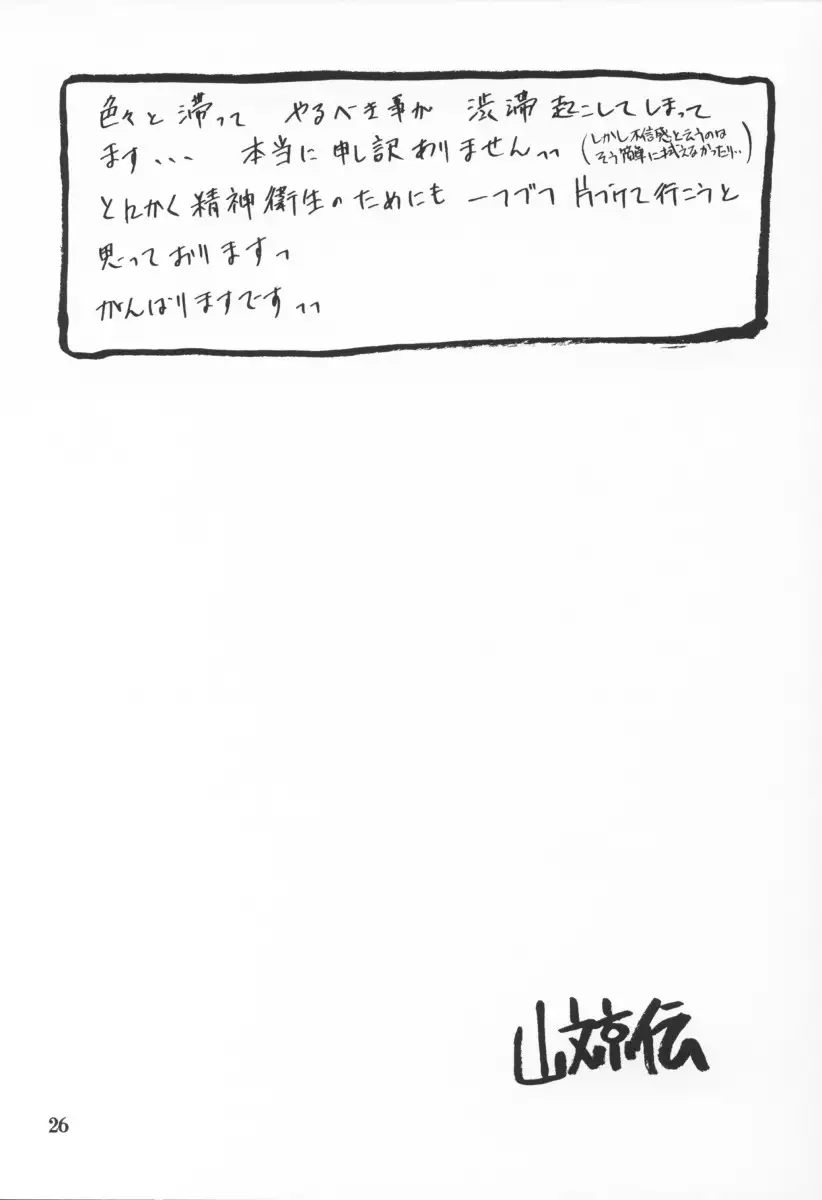 色々と滞って やるべき事が 渋滞起こしてしまって
ます、、、 本当に申し訳ありませんっっ
(しかし不信感と云うのは
そう簡単に拭えなかったり..)
とにかく精神衛生のためにも 一つづつ片づけて行こうと
思っておりますっ
がんばりますですっっ
山文京伝
26